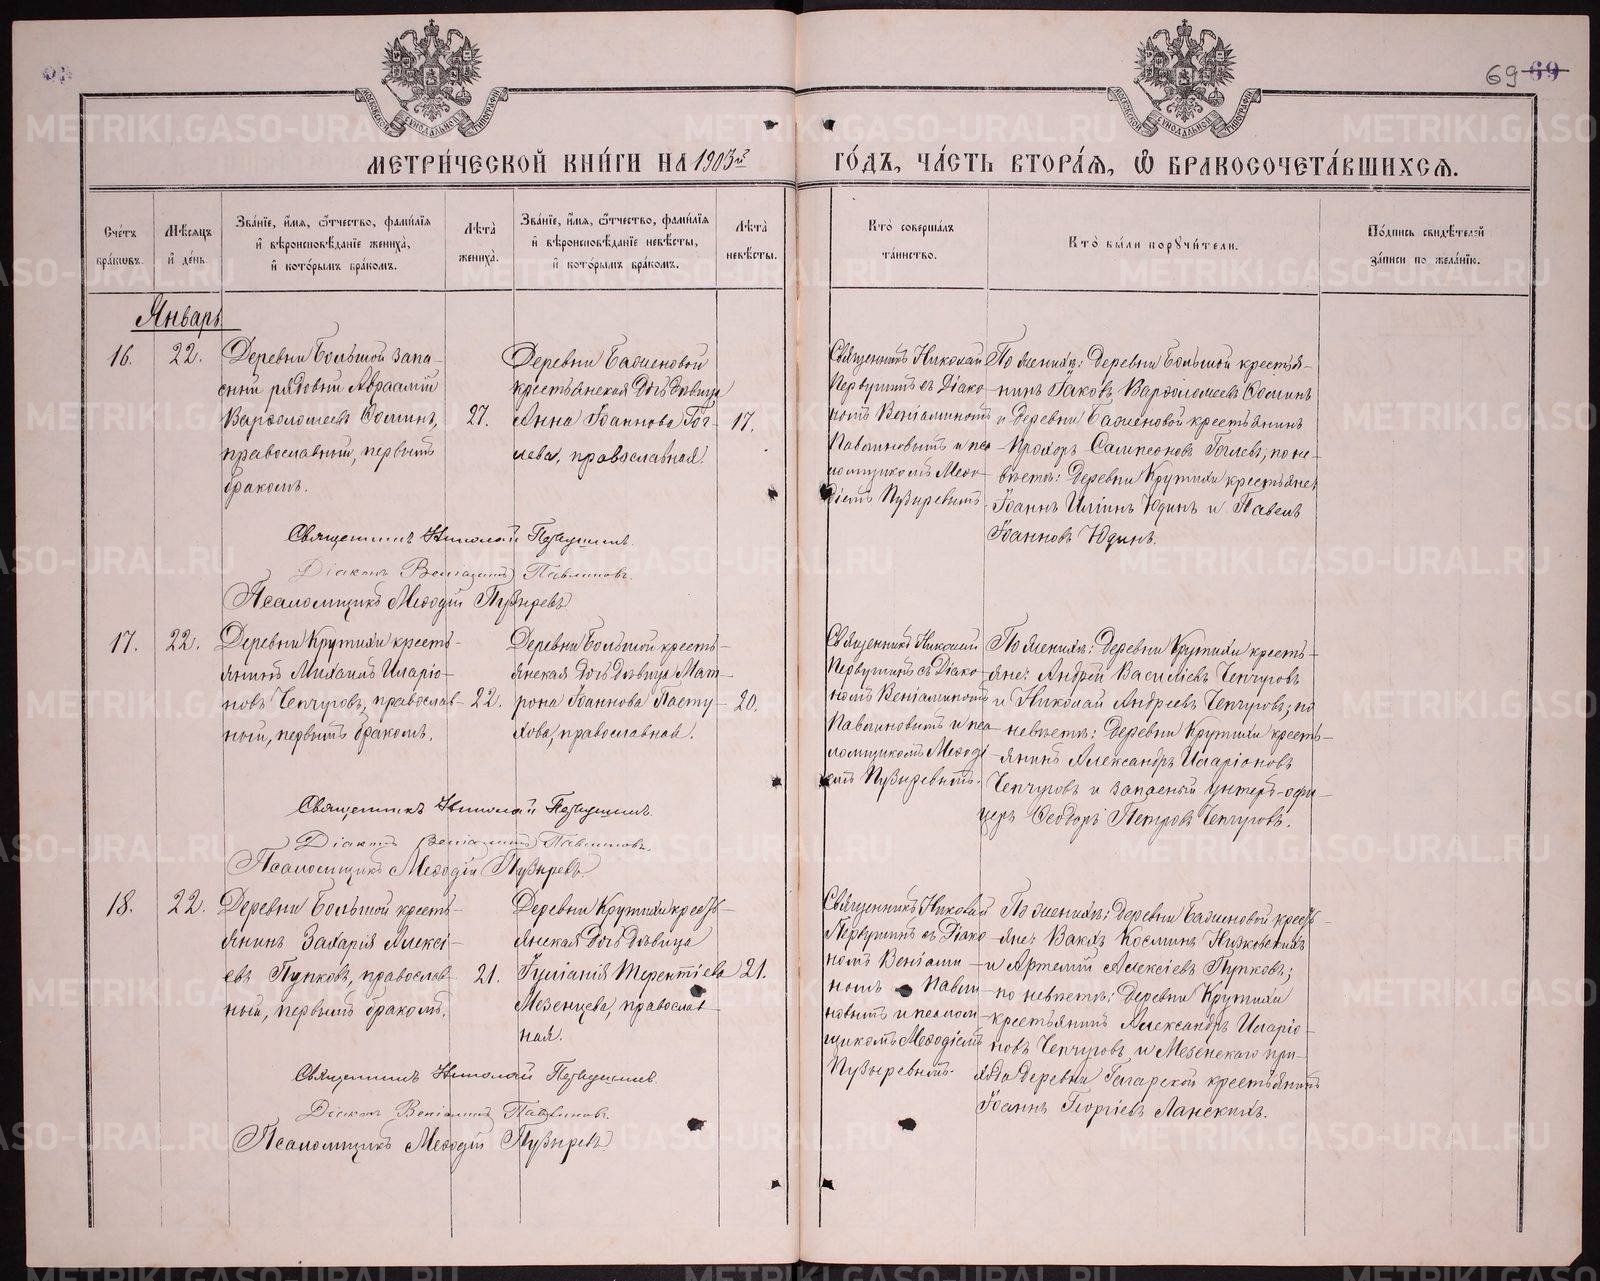 69 69
МЕТРИ́ЧЕСКОЙ КНИ́ГИ НА 1903й
ГО́ДЪ, ЧА́СТЬ ВТОРА́Я, Ѽ БРАКОСОЧЕТА́ВШИХСЯ.
Сче́тъ бра́ковъ.
Мѣ́сяцъ и҆ де́нь.
Зва́нїе, и҆́мя, ѻ҆́тчество, фами́лїя
и҆ вѣроисповѣ́данїе жениха̀,
и҆ кото́рымъ бра́комъ.
Лѣта̀ жениха̀.
Зва́нїе, и҆́мя, ѻ҆́тчество, фами́лїя
и҆ вѣроисповѣ́данїе невѣ́сты,
и҆ кото́рымъ бра́комъ.
Лѣта̀ невѣ́сты.
Кто̀ соверша́лъ
та́инство.
Кто̀ бы́ли порꙋчи́тели.
По́дпись свидѣ́телей
за́писи по жела́нїю.
Январь
16.
22.
Деревни Большой запа-
сный рядовый Авраамій
Варѳоломеевъ Соминъ,
православный, первымъ
бракомъ.
27.
Деревни
крестьянская дочь дѣвица
Анна Іоаннова Гог-
лева, православная.
17.
Священникъ Николай
Первушинъ съ Діако-
номъ Веніаминомъ
Павлиновымъ и пса-
ломщикомъ Меѳо-
діемъ Пузыревымъ.
По женихѣ: Деревни Большой крестья-
нинъ Іаковъ Варѳоломеевъ Соминъ
и Деревни крестьянинъ
Прохоръ Сампсоновъ Гоглевъ; по не-
вѣстѣ: Деревни Крутихи крестьяне:
Іоаннъ Иліинъ Юдинъ и Павелъ
Іоанновъ Юдинъ.
Священникъ Николай Первушинъ.
Діаконъ Веніаминъ Павлиновъ.
Псаломщикъ Меѳодій Пузыревъ
17.
22.
Деревни Крутихи кресть-
янинъ Михаилъ Иларіо-
новъ Чепчуговъ, православ-
ный, первымъ бракомъ.
22.
Деревни Большой кресть-
янская дочь дѣвица Мат-
рона Іоаннова Пасту-
хова, православная.
20.
Священникъ Николай
Первушинъ съ Діако-
номъ Веніаминомъ
Павлиновымъ и пса-
ломщикомъ Меѳоді-
емъ Пузыревымъ.
По женихѣ: Деревни Крутихи кресть-
яне: Андрей Василіевъ Чепчуговъ
и Николай Андреевъ Чепчуговъ; по
невѣстѣ: Деревни Крутихи кресть-
янинъ Александръ Иларіоновъ
Чепчуговъ и запасный унтеръ-офи-
церъ Ѳеодоръ Петровъ Чепчуговъ.
Священникъ Николай Первушинъ.
Діаконъ Веніаминъ Павлиновъ.
Псаломщикъ Меѳодій Пузыревъ.
18.
22.
Деревни Большой кресть-
янинъ Захарія Алексі-
евъ Пупковъ, православ-
ный, первымъ бракомъ.
21.
Деревни Крутихи кресть-
янская дочь дѣвица
Іуліанія Терентіева
Мезенцева, православ-
ная.
21.
Священникъ Николай
Первушинъ съ Діако-
номъ Веніами-
номъ Павли-
новымъ и псалом-
щикомъ Меѳодіемъ
Пузыревымъ.
По женихѣ: Деревни кресть-
яне: Вакхъ Косминъ Низковскихъ
и Артемій Алексіевъ Пупковъ;
по невѣстѣ: Деревни Крутихи
крестьянинъ Александръ Иларіо-
новъ Чепчуговъ и Мезенскаго при-
хода деревни Гагарской крестьянинъ
Іоаннъ Георгіевъ Ланскихъ.
Священникъ Николай Первушинъ.
Діаконъ Веніаминъ Павлиновъ.
Псаломщикъ Меѳодій Пузыревъ
METRIKI.GASO-URAL.RU